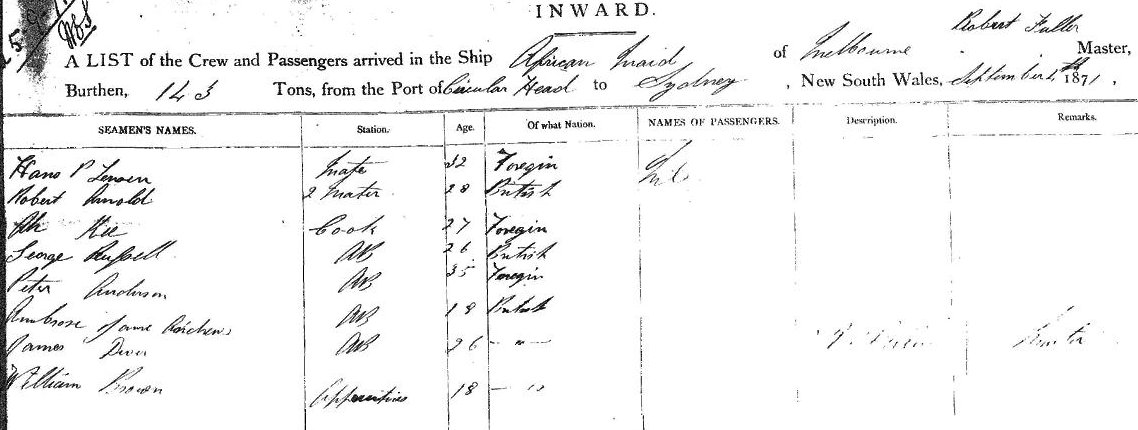 INWARD.
Robert Fuller
A LIST of the Crew and Passengers arrived in the Ship African Maid of Melbourne Master,
Burthen, 143 Tons, from the Port of Circular Head to Sydney, New South Wales, September 4th 1871,
SEAMEN'S NAMES. Station. Age. Of what Nation. NAMES OF PASSENGERS. Description. Remarks.
Hans P Jensen Mate 32 Foregin Nil
Robert Arnold 2 Mater 28 British
Ah Kee Cook 27 Foregin
George Russell AB 26 British
Peter Anderson AB 35 Foregin
Ambrose James AB 18 British
James AB 26 — " —
William Brown 18 — "